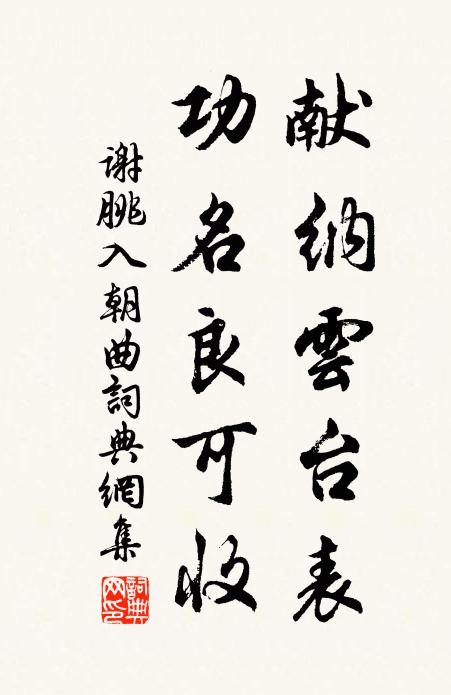 献纳雲台表
功名良可收
谢朓入朝曲詞典網集
詞典網印